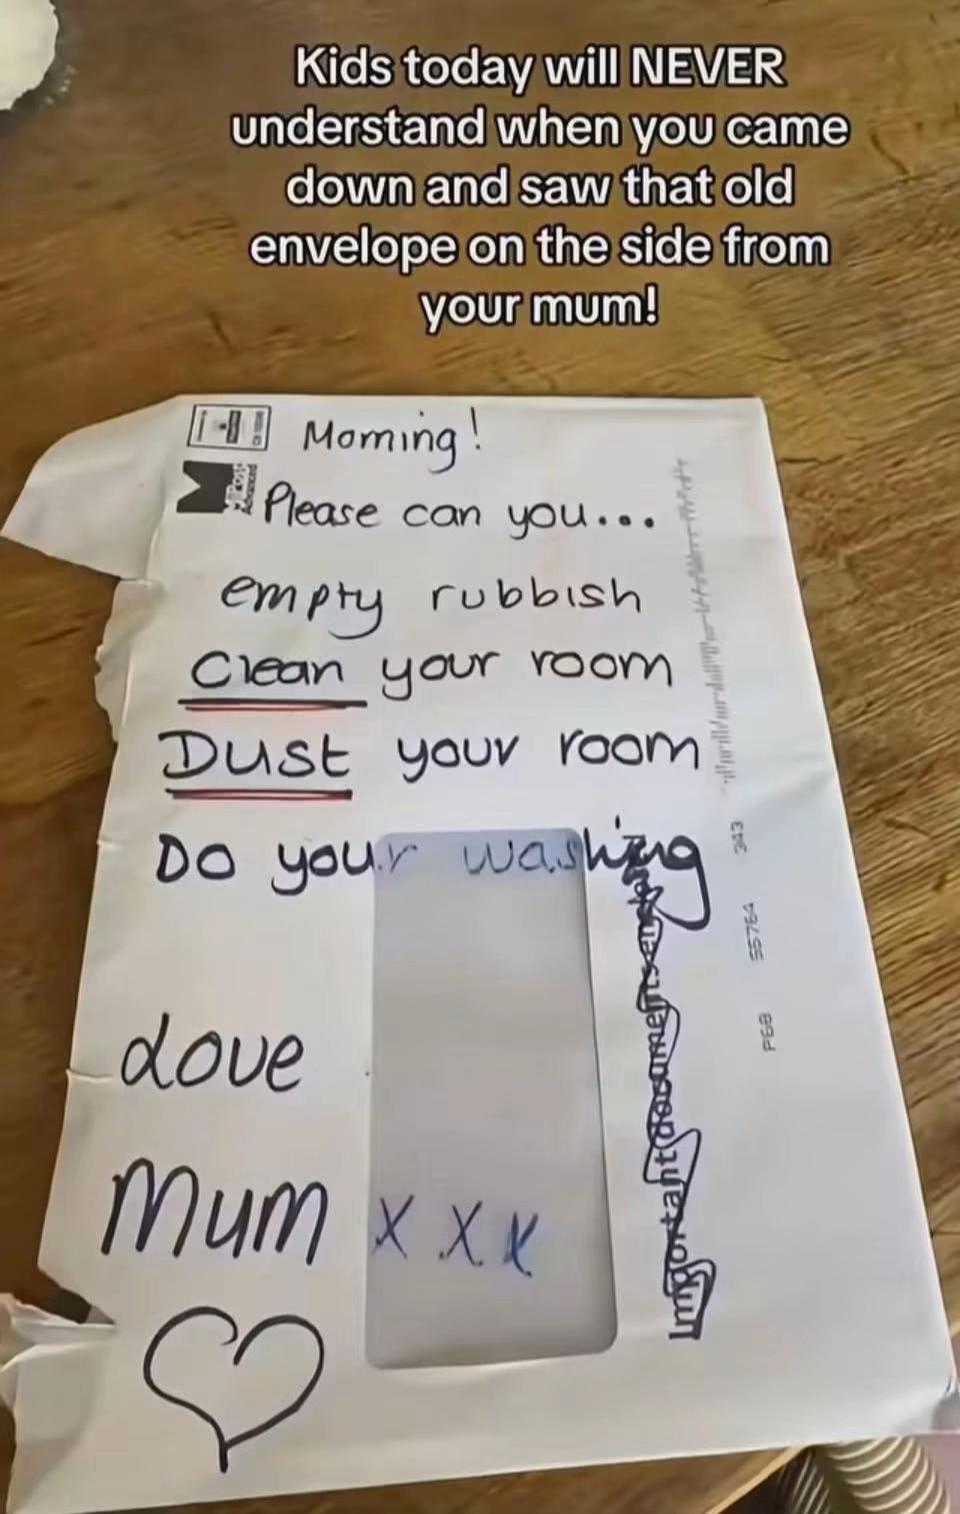 Kids today will NEVER
understand when you came
down and saw that old
envelope on the side from
your mum!
Morning!
Please can you...
empty rubbish
Clean your room
Dust your room
Do your washing
Love
Mum x x x
Important documents
343
55764
P68